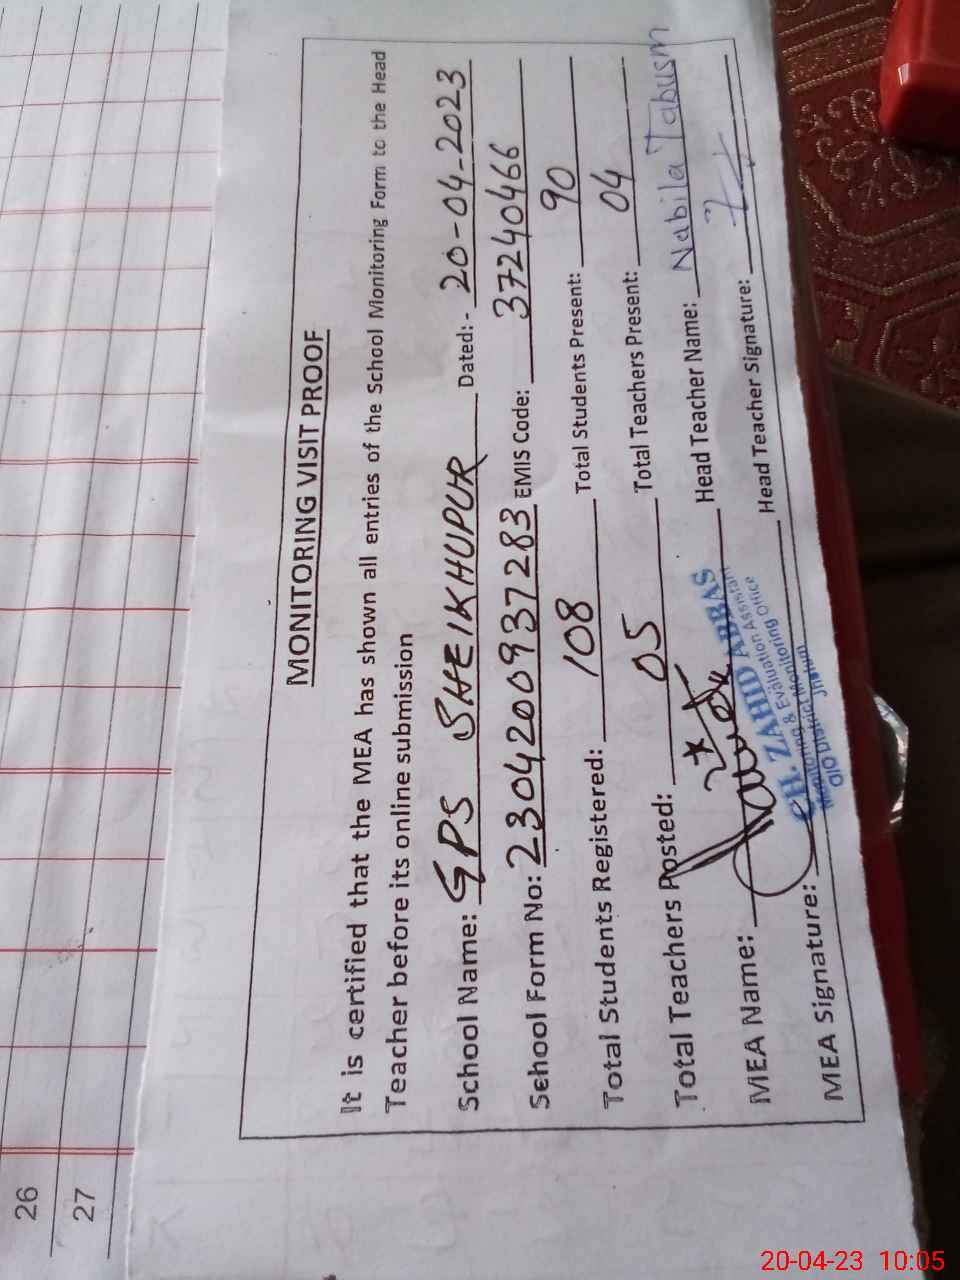 26
27
MONITORING VISIT PROOF
It is certified that the MEA has shown all entries of the School Monitoring Form to the Head
Teacher before its online submission
School Name: GPS SHEIKHUPUR Dated:- 20-04-2023
School Form No: 2304200937283 EMIS Code: 37240466
Total Students Registered: 108 Total Students Present: 90
Total Teachers Posted: 05 Total Teachers Present: 04
MEA Name: Head Teacher Name: Nabila Tabusm
MEA Signature: Head Teacher Signature:
CH. ZAHID ABBAS
Monitoring & Evaluation Assistant
O/O District Monitoring Office
Jhelum
20-04-23 10:05